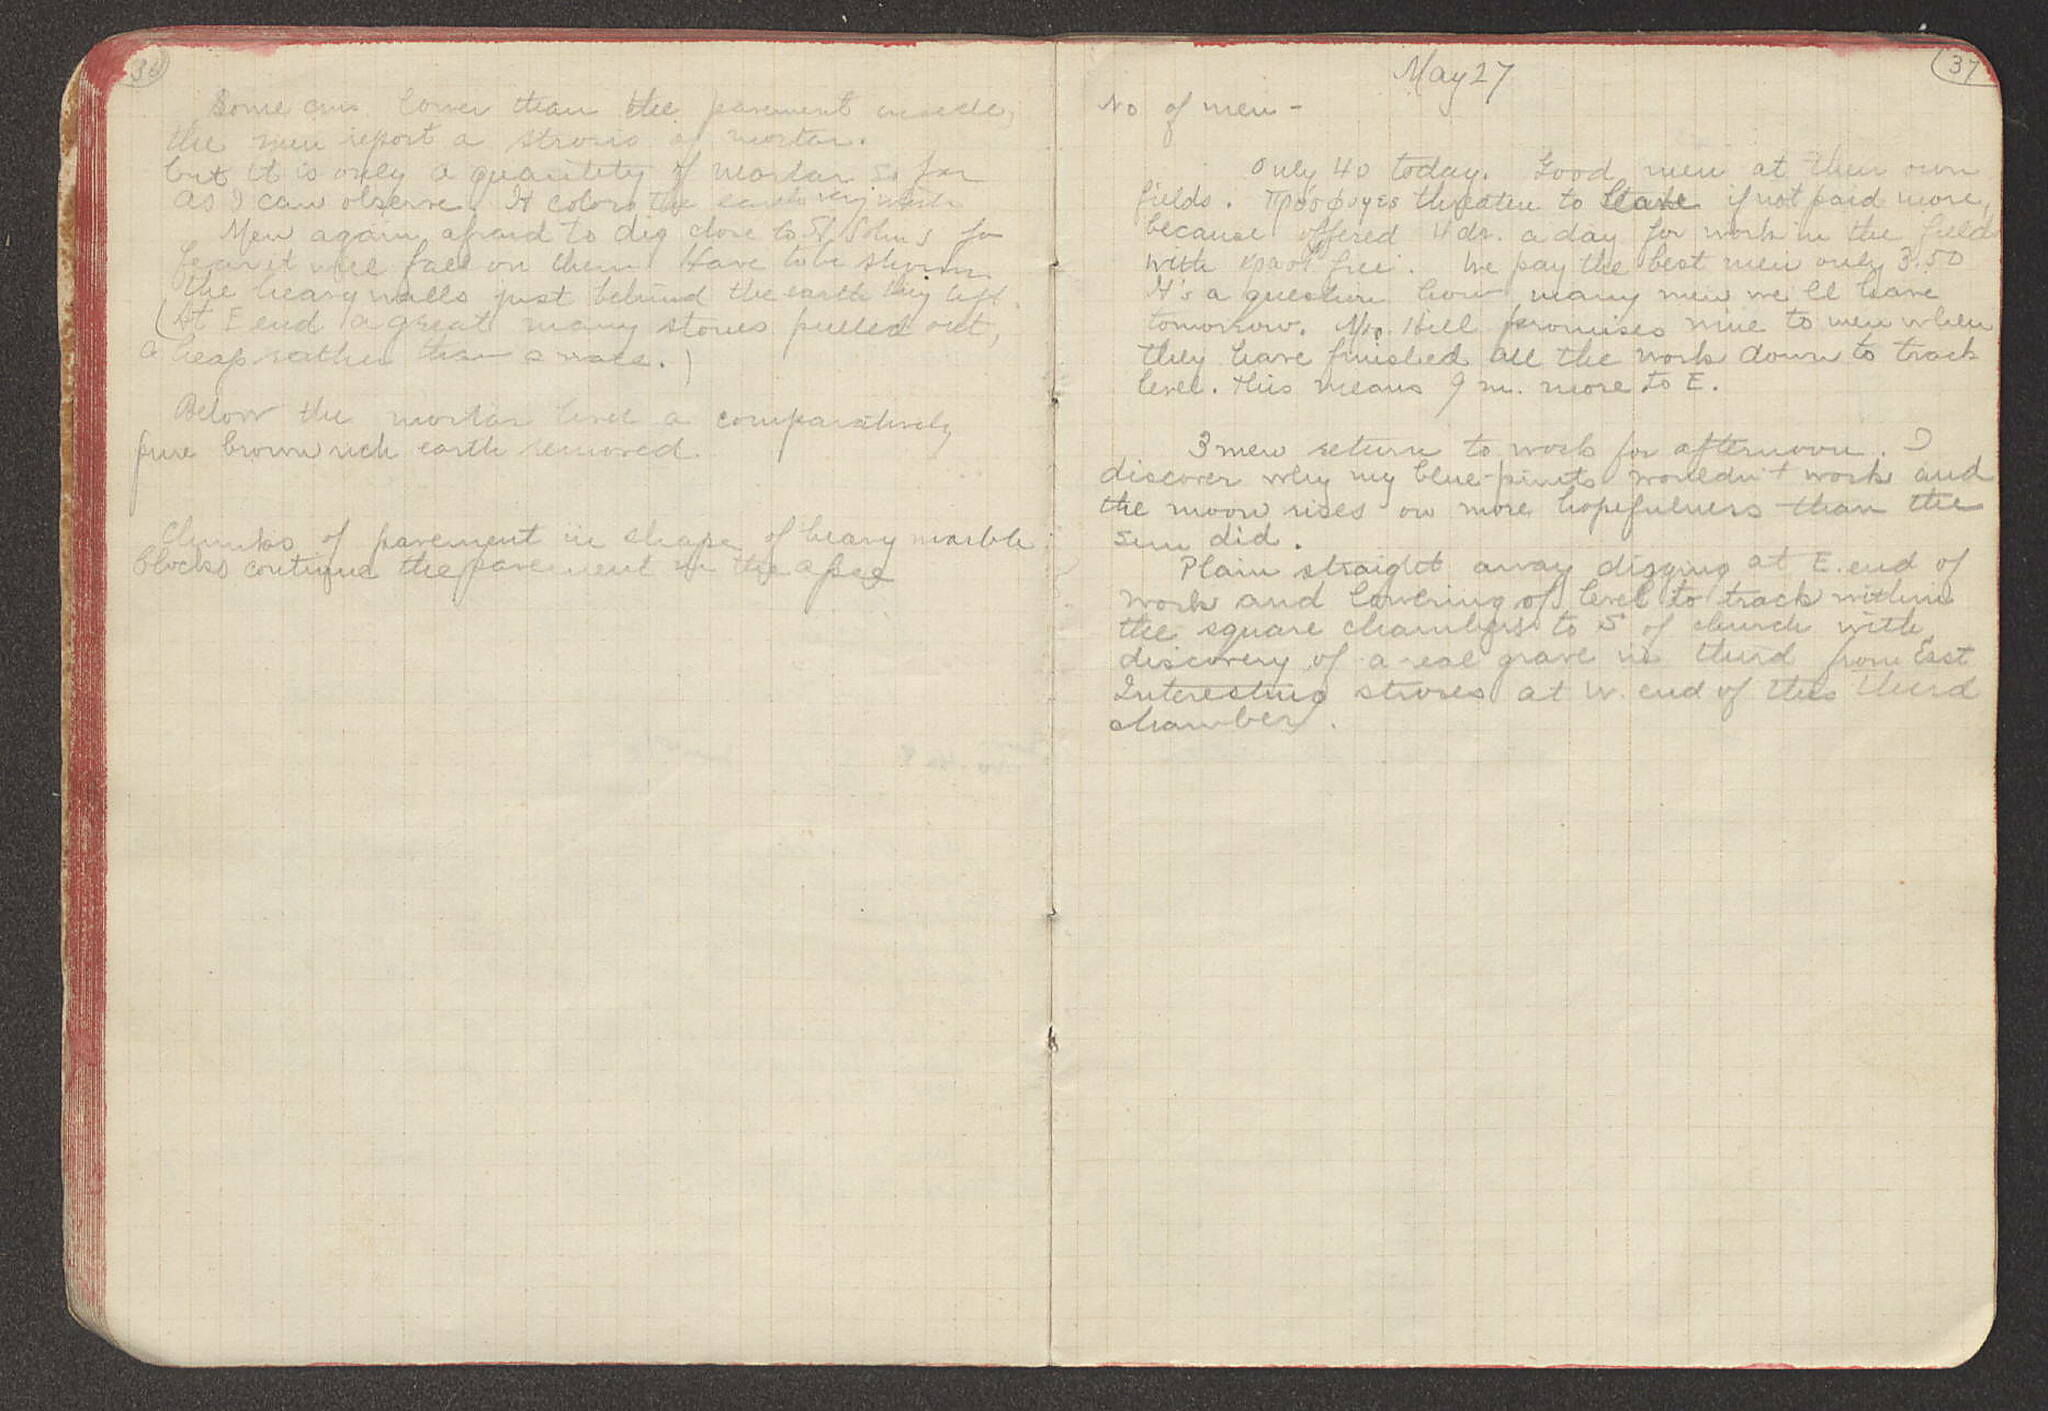 36
Some cms. lower than the pavement inside,
the men report a strosis of mortar.
but it is only a quantity of mortar so far
as I can observe. It colors the earth very white
Men again afraid to dig close to St John's for
fear it will fall on them. Have to be shown
the heavy walls just behind the earth they left.
(At E end a great many stones pulled out,
a heap rather than a wall.)
Below the mortar level a comparatively
pure brown rich earth removed.
Chunks of pavement in shape of heavy marble
blocks continue the pavement in the apse
37
May 27
No of men -
Only 40 today. Good men at their own
fields. Πρόσφυγες threaten to leave if not paid more,
because offered 4 dr. a day for work in the field
with κρασί free. We pay the best men only 3.50
It's a question how many men we'll have
tomorrow. Mr. Hill promises wine to men when
they have finished all the work down to track
level. This means 9 m. more to E.
3 men return to work for afternoon. I
discover why my blue-prints wouldn't work and
the moon rises on more hopefulness than the
sun did.
Plain straight away digging at E. end of
work and lowering of level to track within
the square chambers to S of church with
discovery of a real grave in third from East
Interesting stroses at W. end of this third
chamber.